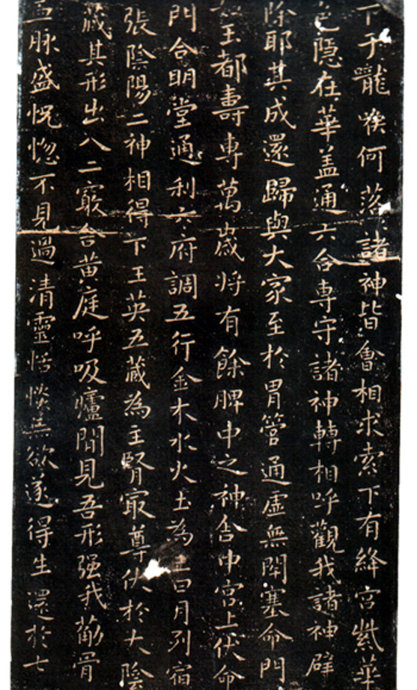 下于嚨喉何落〻諸神皆會相求索下有絳宮紫華
色隱在華蓋通六合專守諸神轉相呼觀我諸神辟
除耶其成還歸與大家至於胃管通虛無閉塞命門
如玉都壽專萬歲將有餘脾中之神舍中宮上伏命
門合明堂通利六府調五行金木水火土為主日月列宿
張陰陽二神相得下玉英五藏為主腎寂尊伏於大陰
藏其形出入二竅舍黃庭呼吸爐間見吾形强我筋骨
血脉盛怳惚不見過清靈恬惔無欲遂得生還於七